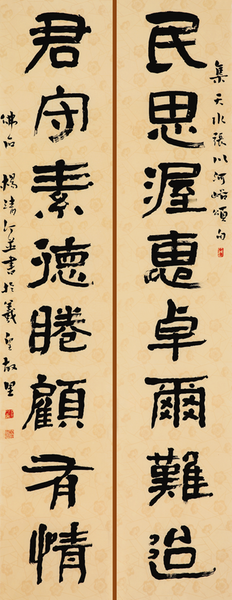 集天水張川河峪頌句
民思渥惠卓爾難迨
君守素德睠顧有情
楊清汀並書於羲皇故里